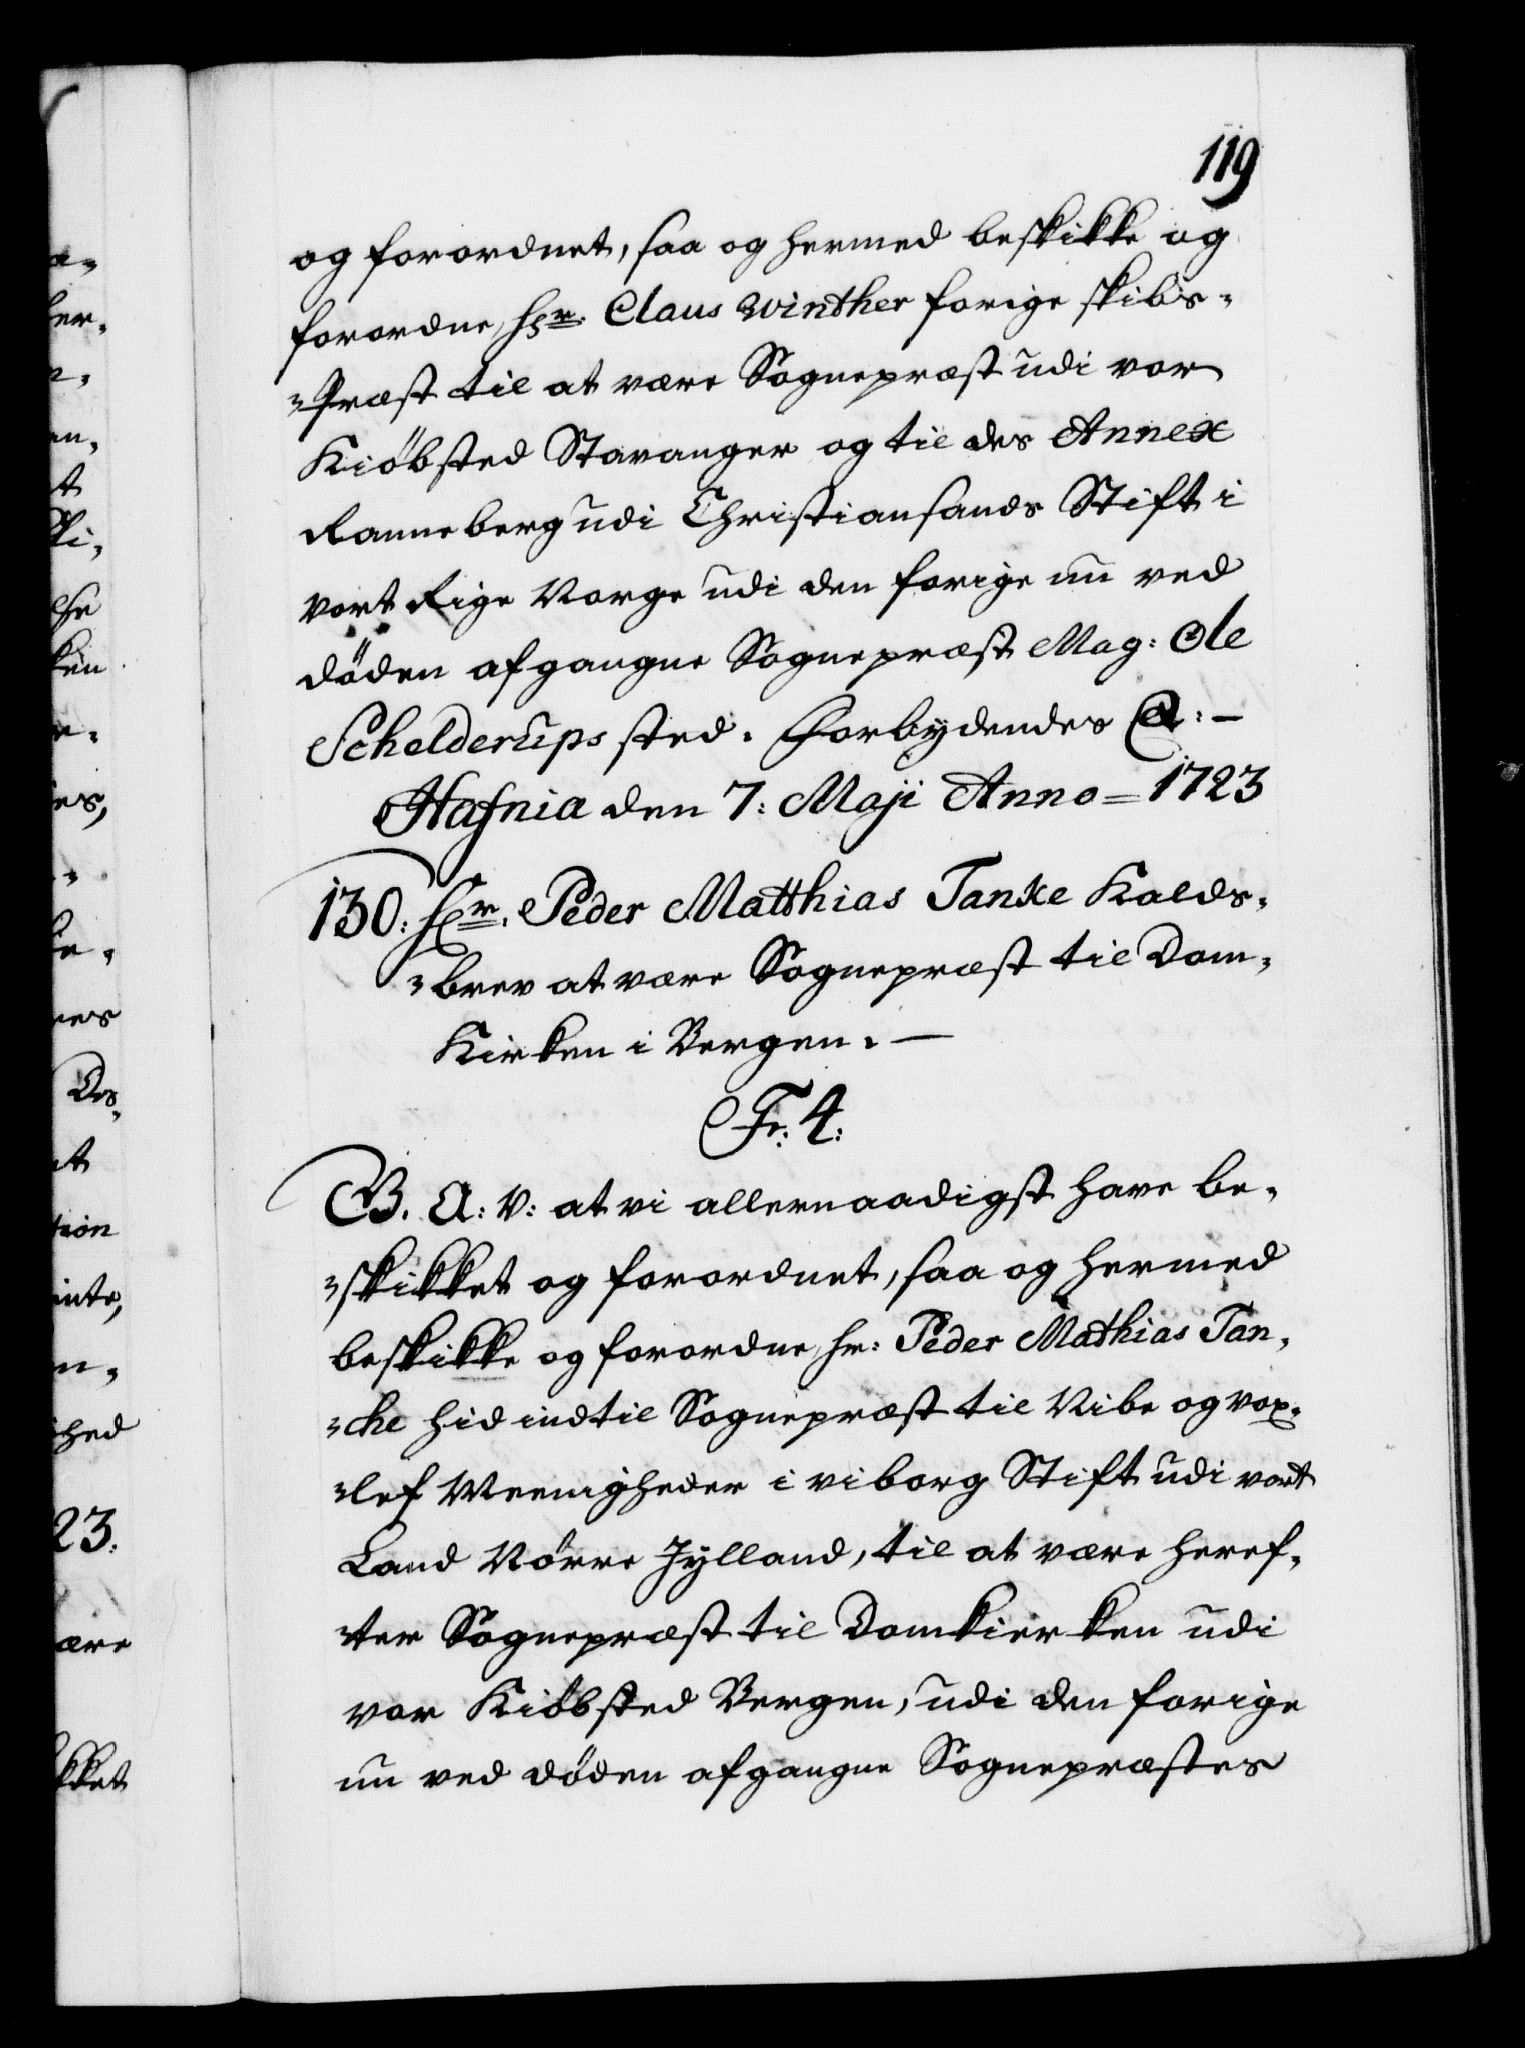 119
og forordnet, saa og hermed beskikke og
forordne, Hr. Claus Winther forige skibs-
-Præst til at være Sognepræst udi vor
Kiöbsted Stavanger og til des Annex
Ranneberg udi Christiansands Stift i
vort Rige Norge udi den forige nu ved
döden afgangne Sognepræst Mag: Ole
Schelderups sted. Forbydendes &:-
Hafnia den 7: Maji Anno = 1723
130: Hr. Peder Matthias Tanke Kalds-
-brev at være Sognepræst til Dom-
Kirken i Bergen.-
Fr: 4:
G. A: V: at vi allernaadigst have be-
-skikket og forordnet, saa og hermed
beskikke og forordne, Hr: Peder Mathias Tan-
-che hid indtil Sognepræst til Vibe og vox-
-lef Meenigheder i viborg Stift udi vort
Land Nörre Jylland, til at være heref-
-ter Sognepræst til Domkierken udi
vor Kiöbsted Bergen, udi den forige
nu ved döden afgangne Sognepræstes